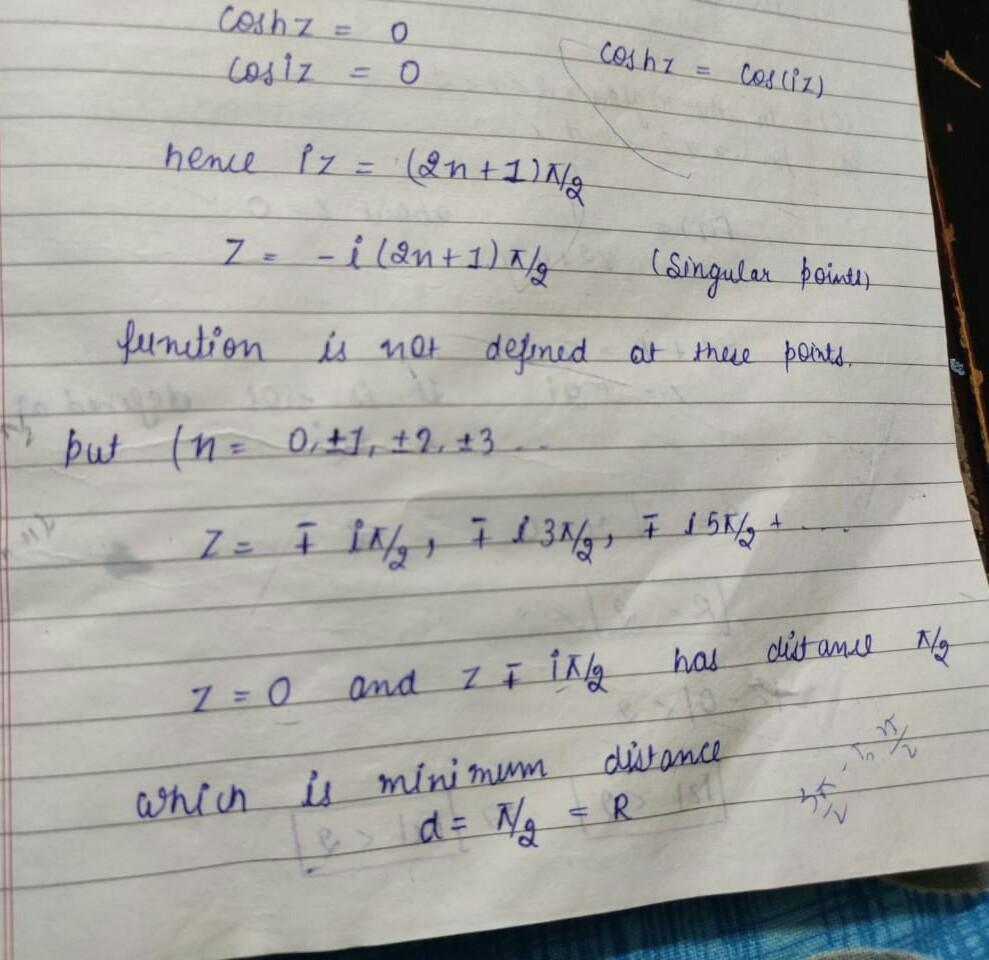 coshz = 0
coshz = cos(iz)
cosiz = 0
hence iz = (2n+1)π/2
z = -i(2n+1)π/2 (Singular points)
function is not defined at these points.
put (n = 0, ±1, ±2, ±3 ...
z = ∓ iπ/2, ∓ i3π/2, ∓ i5π/2 + ....
z = 0 and z ∓ iπ/2 has distance π/2
which is minimum distance
d = π/2 = R